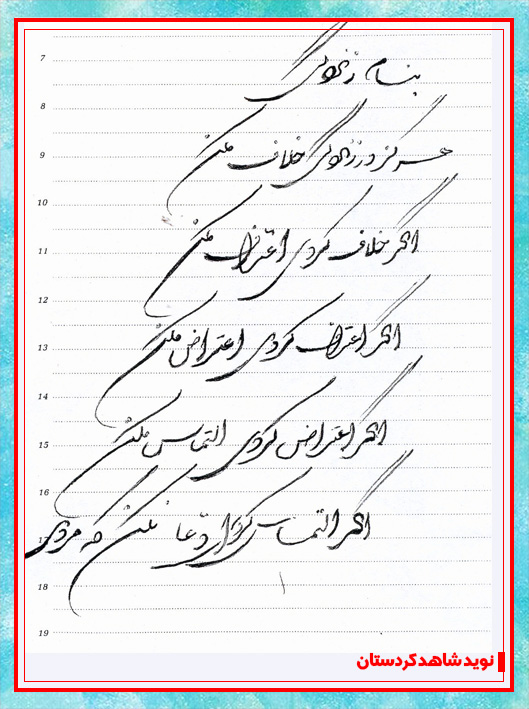 7
بنام زندگی
8
9
هرگز در زندگی خلاف مکن
10
11
اگر خلاف کردی اعتراف مکن
12
13
اگر اعتراف کردی اعتراض مکن
14
15
اگر اعتراض کردی التماس مکن
16
17
اگر التماس کردی ادعا مکن که مردی
18
19
نوید شاهد کردستان